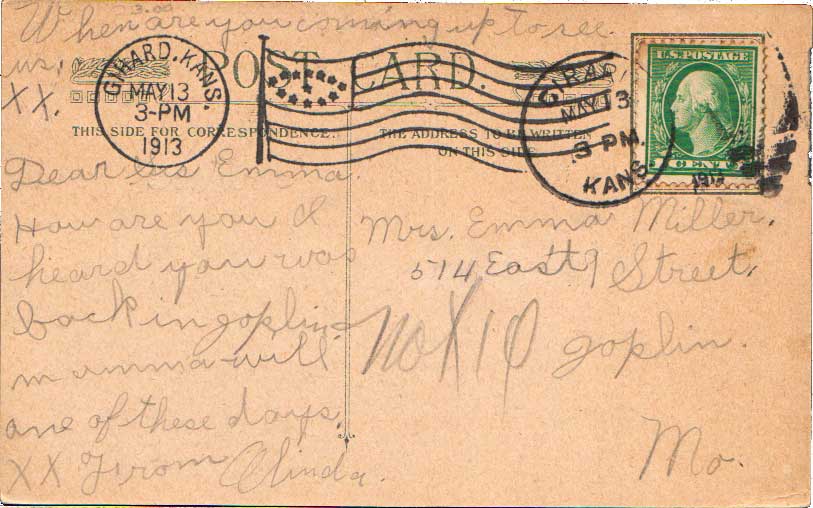 When are you coming up to see
us.
XX.
3.00
POST CARD.
GIRARD, KANS.
MAY 13
3-PM
1913
GIRARD
MAY 13
3 PM.
1913
KANS.
U.S. POSTAGE
1 CENT 1
THIS SIDE FOR CORRESPONDENCE.
THE ADDRESS TO BE WRITTEN
ON THIS SIDE
Dear Sis Emma.
How are you I
heard you was
back in joplin
mumma will
one of these days.
XX From Olinda.
Mrs. Emma Miller.
514 East 9 Street.
joplin.
Mo.